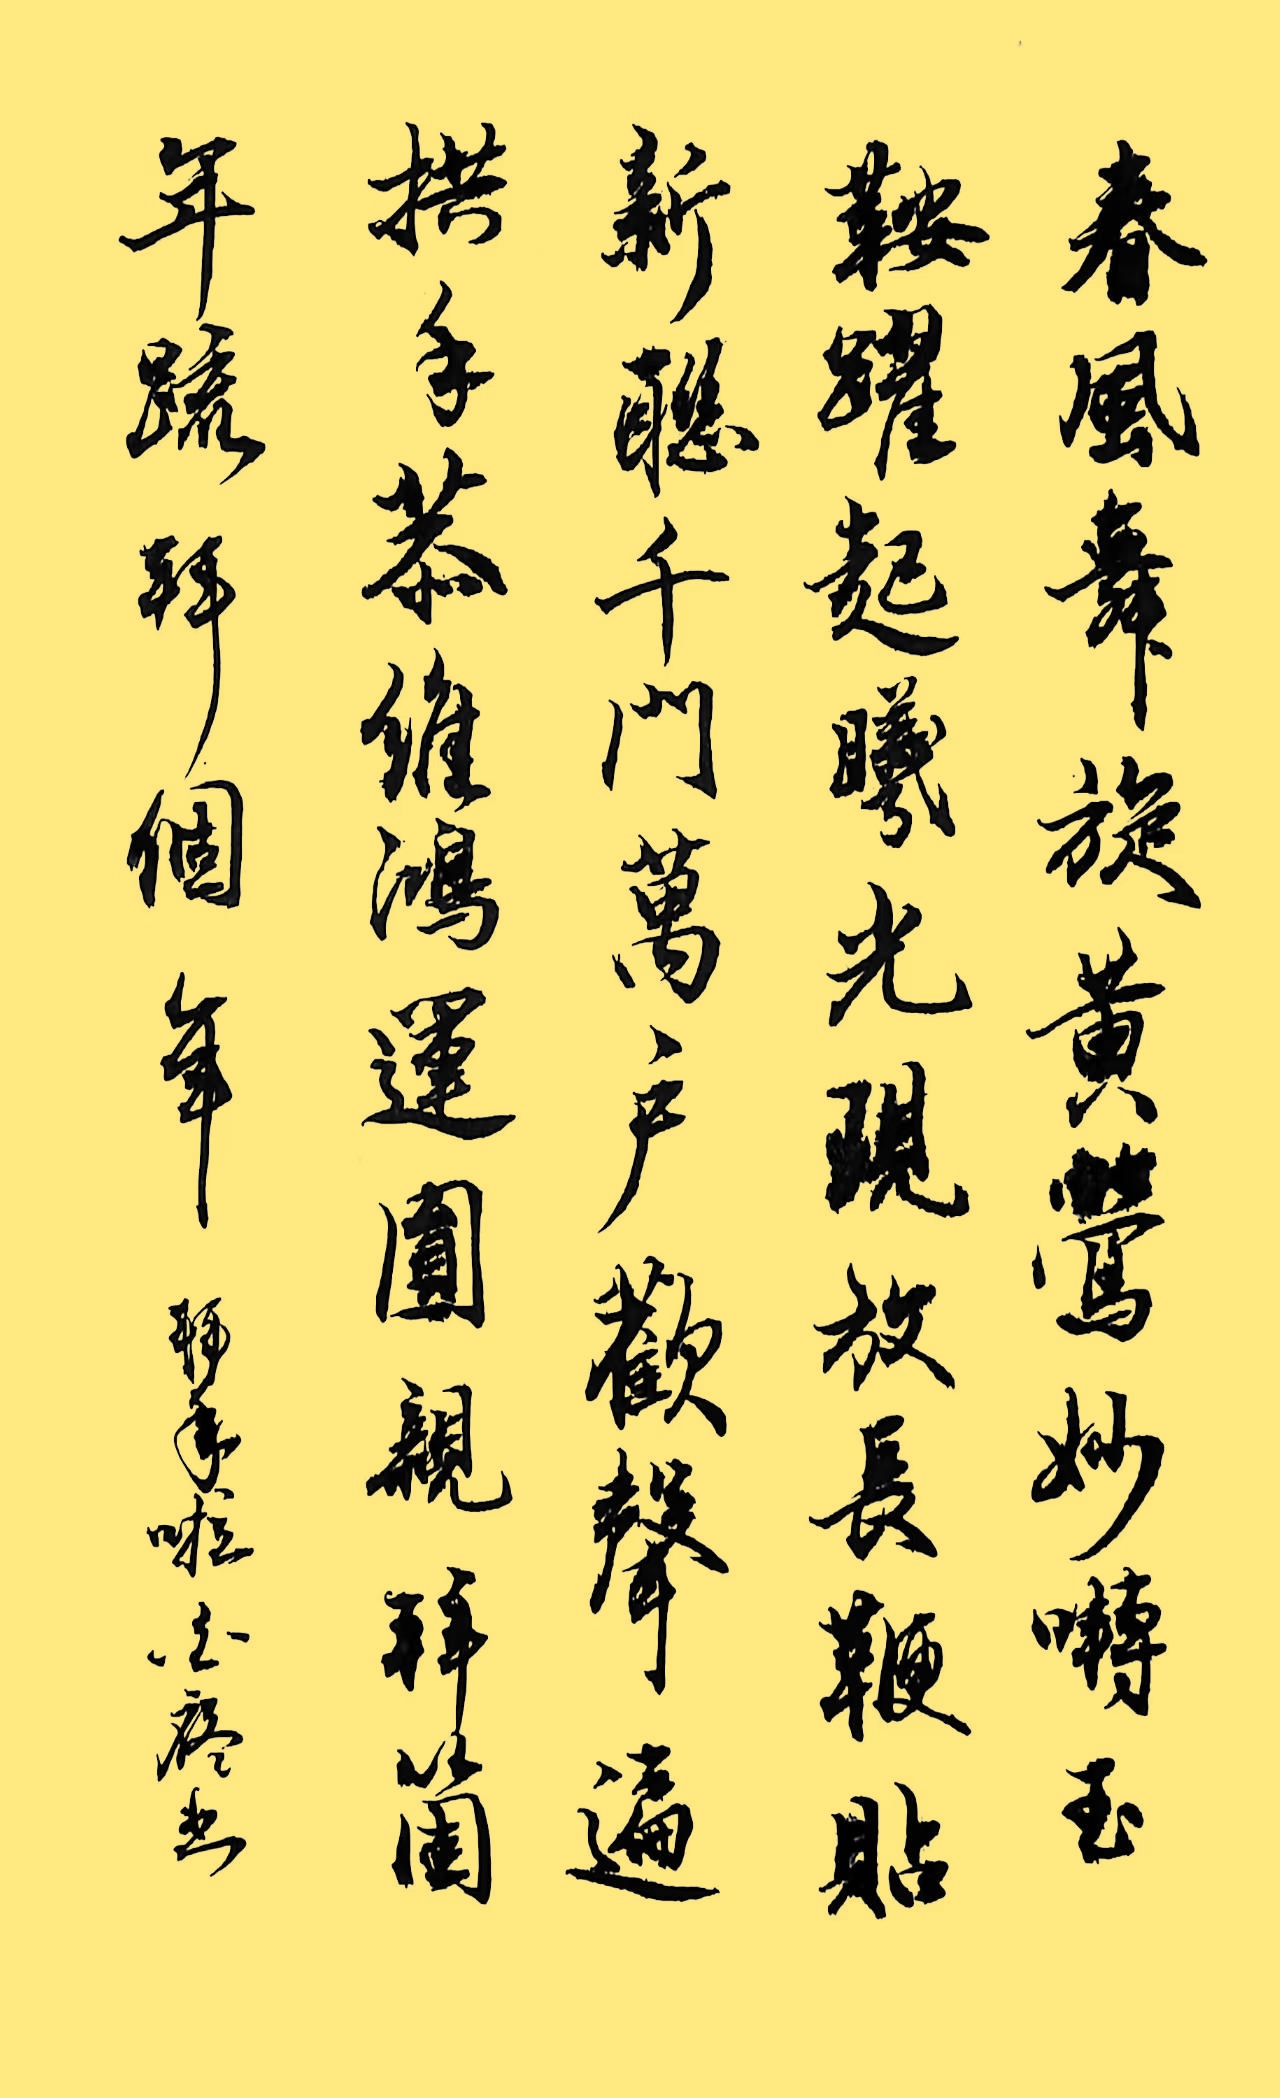 春風舞旋黄鶯妙囀玉
鞍躍起曦光現放長鞭貼
新聯千門萬户歡聲遍
拱手恭維鴻運圓親拜箇
年疏拜個年
拜年啦
書